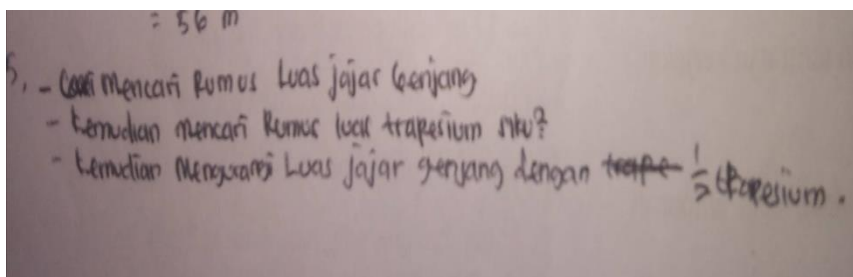 = 56 m
5. - Mencari Rumus Luas jajar Genjang
- kemudian mencari Rumus luas trapesium siku²
- kemudian Mengurangi Luas jajar genjang dengan 1/2 trapesium.